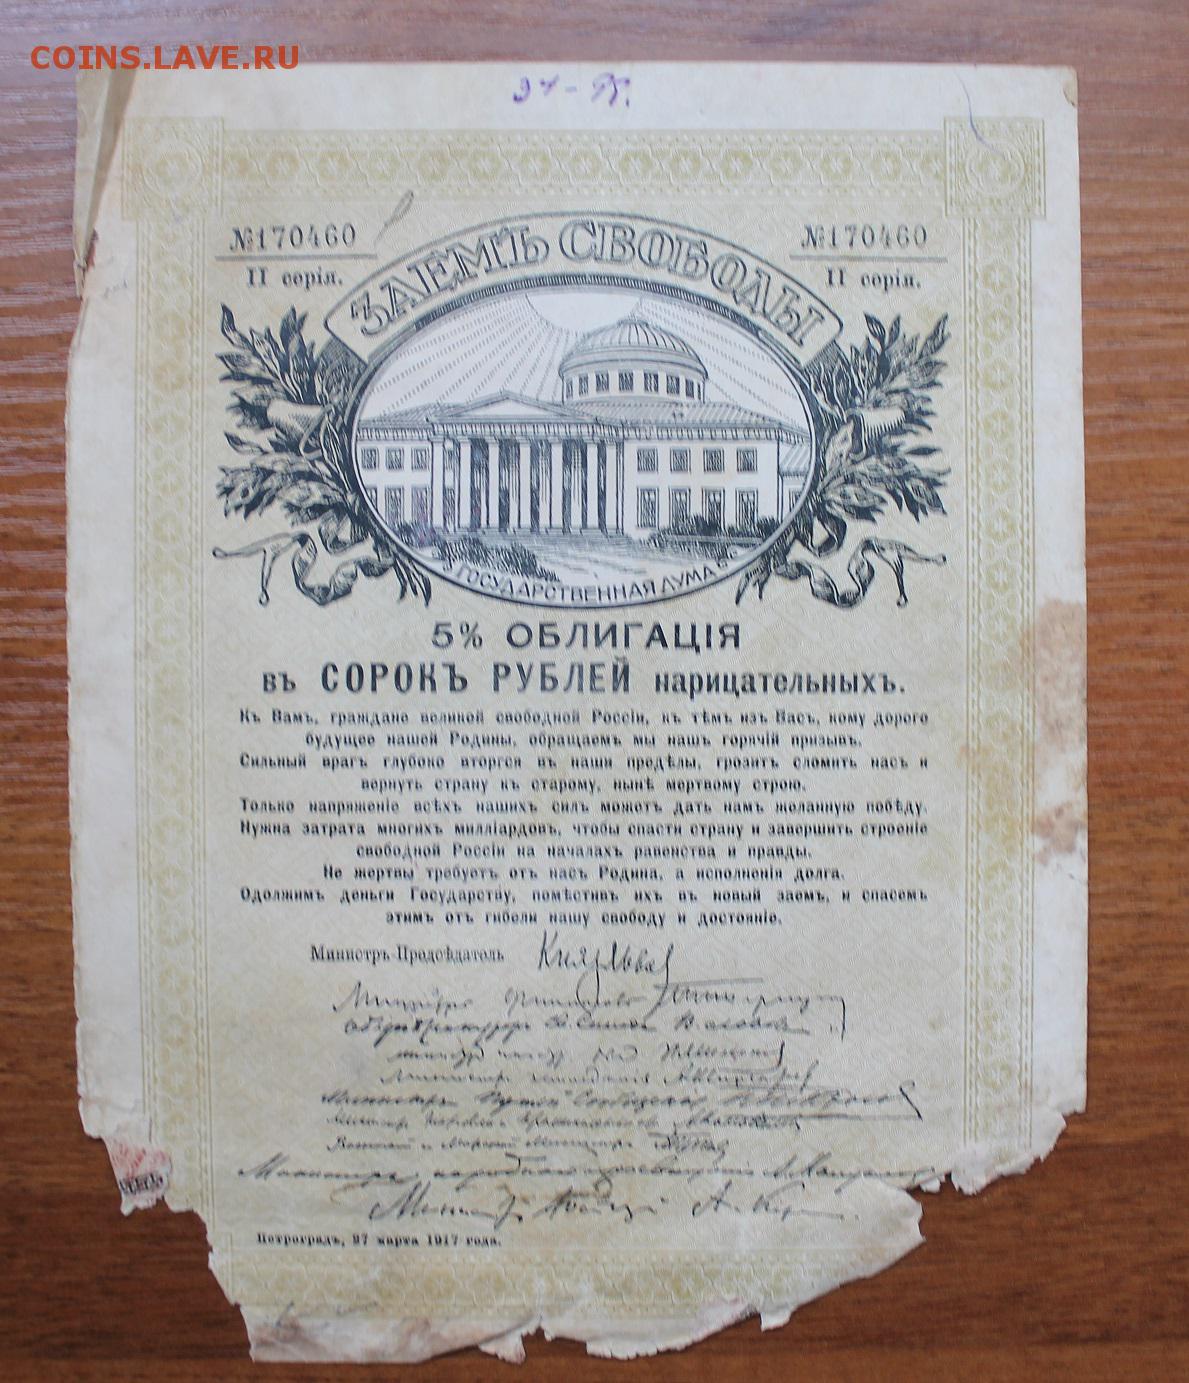 COINS.LAVE.RU
№170460
№170460
II серія.
II серія.
ЗАЕМЪ СВОБОДЫ
ГОСУДАРСТВЕННАЯ ДУМА
5% ОБЛИГАЦІЯ
въ СОРОКЪ РУБЛЕЙ нарицательныхъ.
Къ Вамъ, граждане великой свободной Россіи, къ тѣмъ изъ Васъ, кому дорого
будущее нашей Родины, обращаемъ мы нашъ горячій призывъ.
Сильный врагъ глубоко вторгся въ наши предѣлы, грозитъ сломить насъ и
вернуть страну къ старому, нынѣ мертвому строю.
Только напряженіе всѣхъ нашихъ силъ можетъ дать намъ желанную побѣду.
Нужна затрата многихъ милліардовъ, чтобы спасти страну и завершить строеніе
свободной Россіи на началахъ равенства и правды.
Не жертвы требуетъ отъ насъ Родина, а исполненія долга.
Одолжимъ деньги Государству, помѣстивъ ихъ въ новый заемъ, и спасемъ
этимъ отъ гибели нашу свободу и достояніе.
Министръ-Предсѣдатель Князь Львов
Министръ Финансовъ
Министръ Путей Сообщенія
Военный и Морской Министръ
Министръ народнаго просвѣщенія
Министръ
Петроградъ, 27 марта 1917 года.